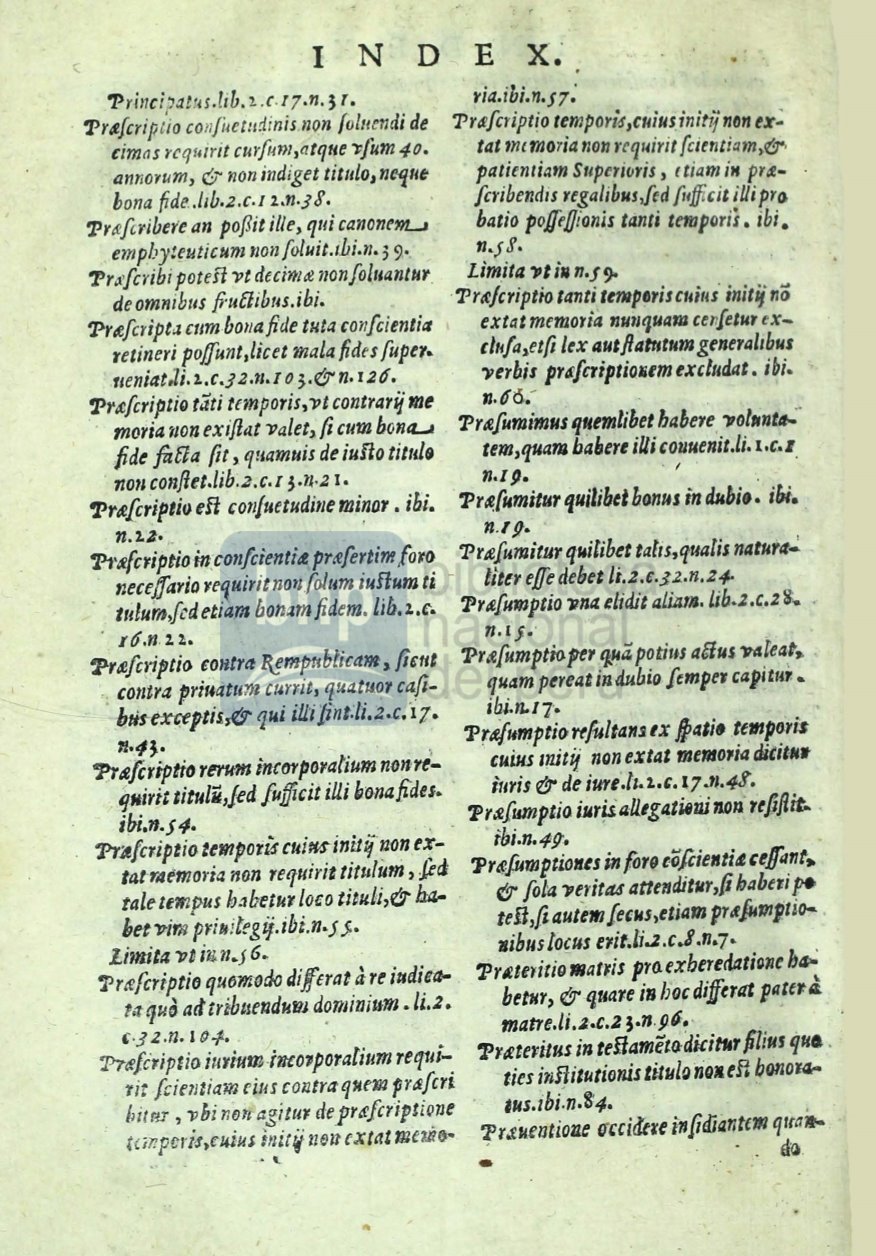 INDEX.
Principatus.lib.2.c.17.n.31.
Præſcriptio conſuetudinis non ſoluendi de
cimas requirit curſum,atque vſum 40.
annorum, & non indiget titulo, neque
bona fide.lib.2.c.12.n.38.
Præſcribere an poßit ille, qui canonem
emphyteuticum non ſoluit.ibi.n.39.
Præſcribi poteſt vt decimæ non ſoluantur
de omnibus fructibus.ibi.
Præſcripta cum bona fide tuta conſcientia
retineri poſſunt,licet mala fides ſuper-
ueniat.li.2.c.32.n.103.& n.126.
Præſcriptio tāti temporis,vt contrarij me
moria non exiſtat valet, ſi cum bona
fide facta ſit, quamuis de iuſto titulo
non conſtet.lib.2.c.13.n.21.
Præſcriptio eſt conſuetudine minor. ibi.
n.22.
Præſcriptio in conſcientiæ præſertim foro
neceſſario requirit non ſolum iuſtum ti
tulum,ſed etiam bonam fidem. lib.2.c.
16.n 22.
Præſcriptio contra Rempublicam, ſicut
contra priuatum currit, quatuor caſi-
bus exceptis,& qui illi ſint.li.2.c.17.
n.43.
Præſcriptio rerum incorporalium non re-
quirit titulū,ſed ſufficit illi bona fides.
ibi.n.54.
Præſcriptio temporis cuius initij non ex-
tat memoria non requirit titulum, ſed
tale tempus habetur loco tituli,& ha-
bet vim priuilegij.ibi.n.55.
Limita vt in n.56.
Præſcriptio quomodo differat à re iudica-
ta quò ad tribuendum dominium. li.2.
c.32.n.104.
Præſcriptio iurium incorporalium requi-
rit ſcientiam eius contra quem præſcri
bitur, vbi non agitur de præſcriptione
temporis,cuius initij non extat memo-
ria.ibi.n.57.
Præſcriptio temporis,cuius initij non ex-
tat memoria non requirit ſcientiam,&
patientiam Superioris, etiam in præ-
ſcribendis regalibus,ſed ſufficit illi pro
batio poſſeſſionis tanti temporis. ibi.
n.58.
Limita vt in n.59.
Præſcriptio tanti temporis cuius initij nō
extat memoria nunquam cenſetur ex-
cluſa,etſi lex aut ſtatutum generalibus
verbis præſcriptionem excludat. ibi.
n.60.
Præſumimus quemlibet habere volunta-
tem,quam habere illi conuenit.li.1.c.1
n.19.
Præſumitur quilibet bonus in dubio. ibi.
n.19.
Præſumitur quilibet talis,qualis natura-
liter eſſe debet li.2.c.32.n.24.
Præſumptio vna elidit aliam. lib.2.c.28.
n.15.
Præſumptio per quā potius actus valeat,
quam pereat in dubio ſemper capitur.
ibi.n.17.
Præſumptio reſultans ex ſpatio temporis
cuius initij non extat memoria dicitur
iuris & de iure.li.2.c.17.n.48.
Præſumptio iuris allegationi non reſiſtit.
ibi.n.49.
Præſumptiones in foro cōſcientiæ ceſſant,
& ſola veritas attenditur,ſi haberi po
teſt,ſi autem ſecus,etiam præſumptio-
nibus locus erit.li.2.c.8.n.7.
Præteritio matris pro exheredatione ha-
betur, & quare in hoc differat pater à
matre.li.2.c.23.n.96.
Præteritus in teſtamēto dicitur filius quo
ties inſtitutionis titulo non eſt honora-
tus.ibi.n.84.
Præuentione occidere inſidiantem quan-
do